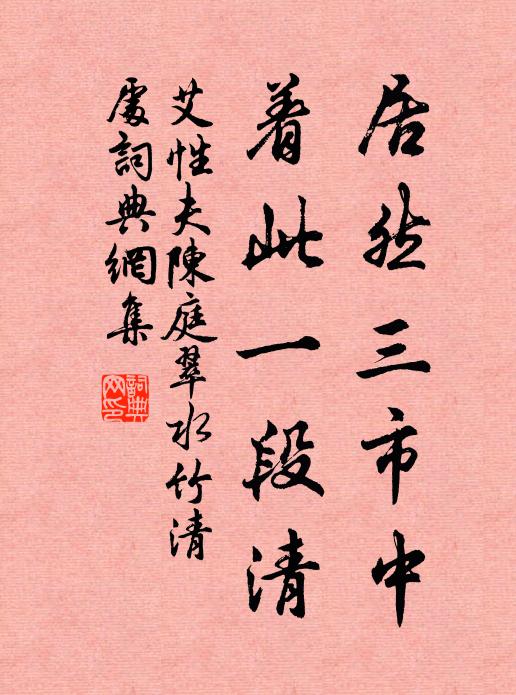 居然三市中
着此一段清
艾性夫陳庭翠水竹清
處詞典網集
詞典網印